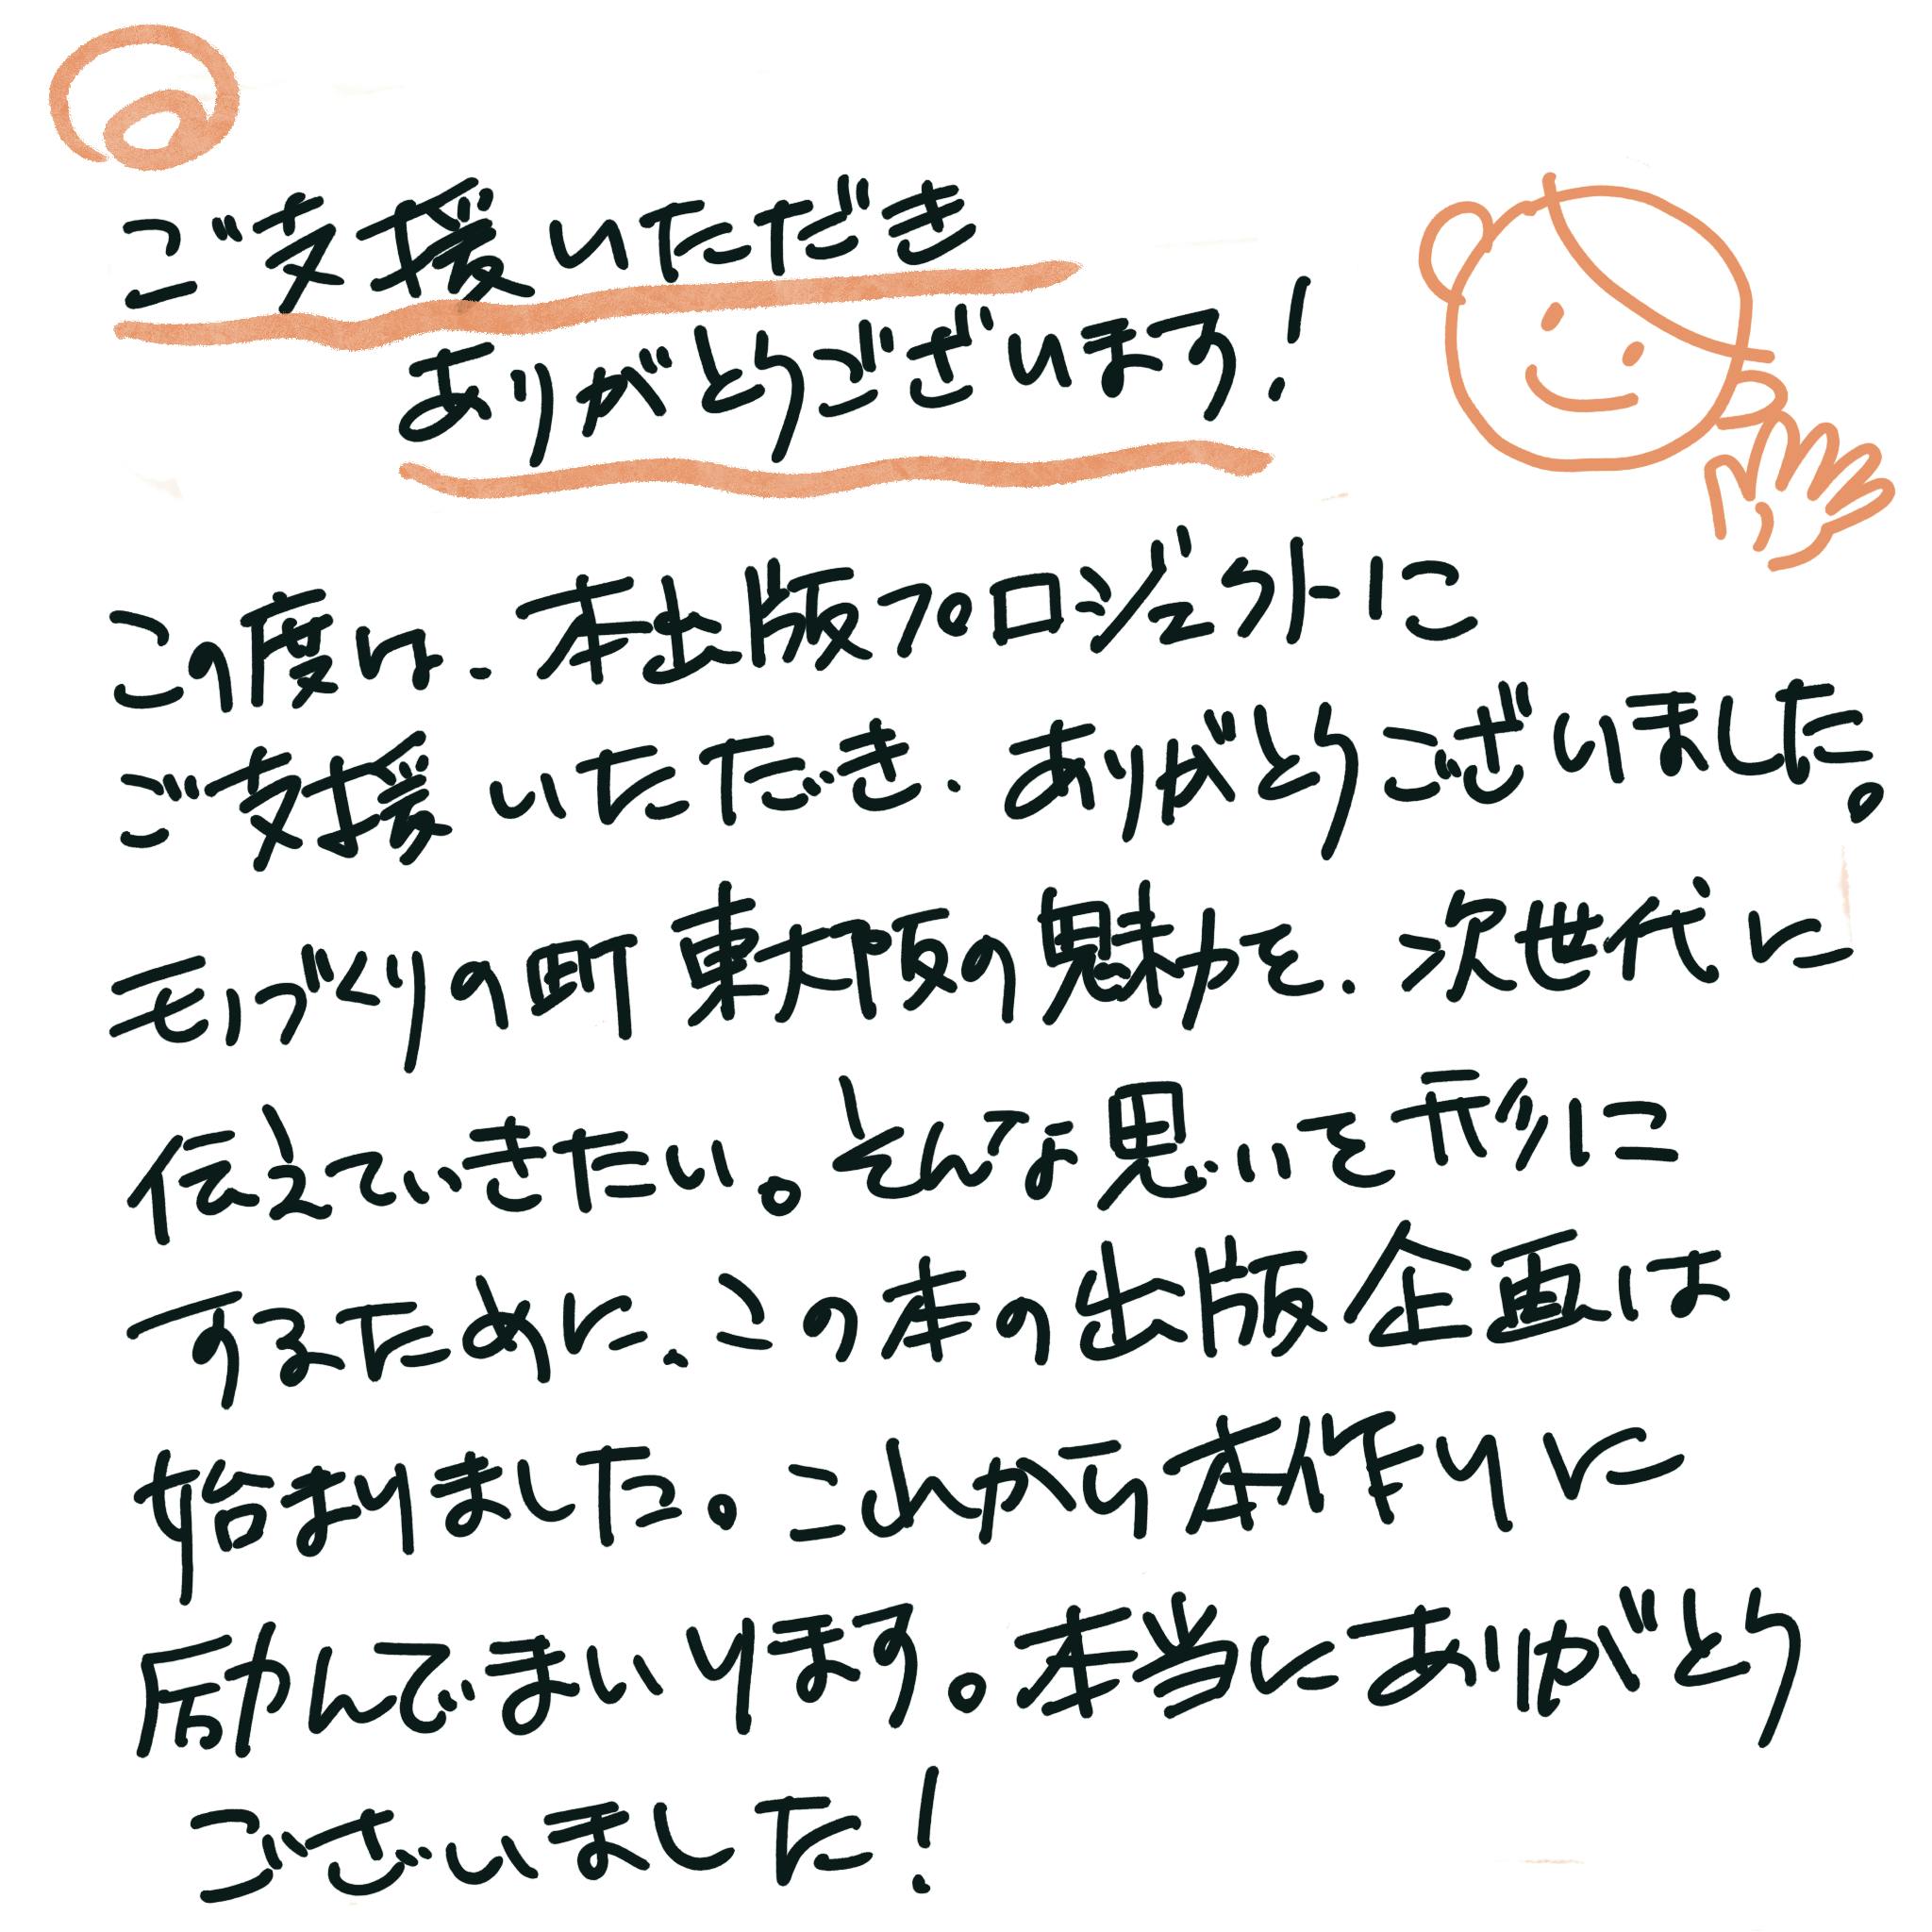 ご支援いただき
ありがとうございます!
この度は、本出版プロジェクトに
ご支援いただき、ありがとうございました。
モノづくりの町 東大阪の魅力を、次世代に
伝えていきたい。そんな思いを形に
するために、この本の出版企画は
始まりました。これから本作りに
励んでまいります。本当にありがとう
ございました!